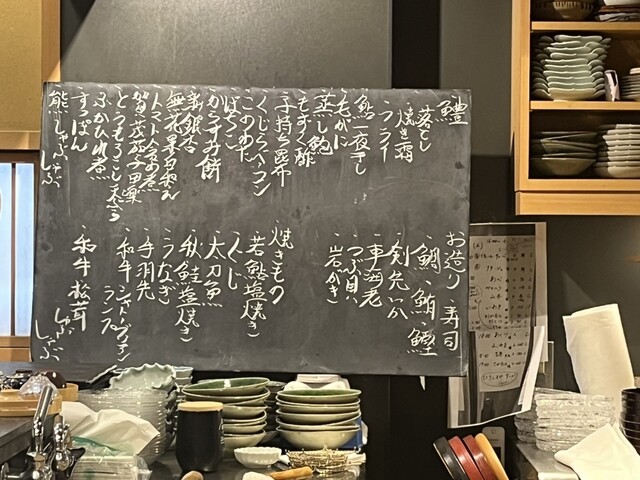 鱧
落とし
焼き霜
フライ
鮎一夜干し
毛がに
蒸し鮑
もずく酢
子持ち昆布
くじらベーコン
このわた
ばちこ
からすみ餅
新銀杏
無花果白和え
トマト冷め煮
賀茂茄子田楽
とうもろこし天ぷら
ふかひれ煮
すっぽん
熊しゃぶしゃぶ
お造り 寿司
鯛、鮪、鰹
剣先いか
車海老
つぶ貝
岩がき
焼きもの
若鮎塩焼き
ぐじ
太刀魚
秋鮭塩焼き
うなぎ
手羽先
和牛 シャトーブリアン
ランプ
和牛 松茸 しゃぶしゃぶ